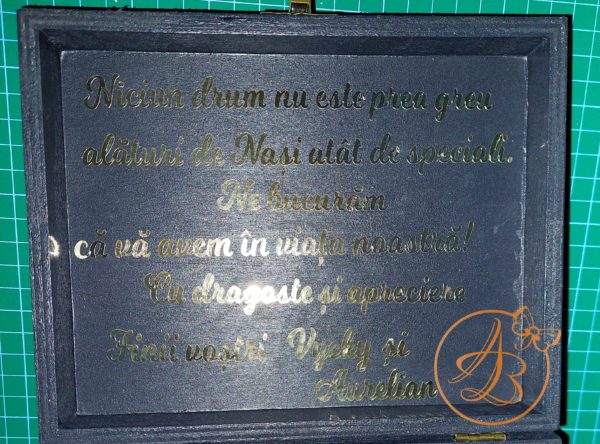 Niciun drum nu este prea greu
alături de Nași atât de speciali.
Ne bucurăm
că vă avem în viața noastră!
Cu dragoste și apreciere
Finii voștri Vyky și
Aurelian
AB